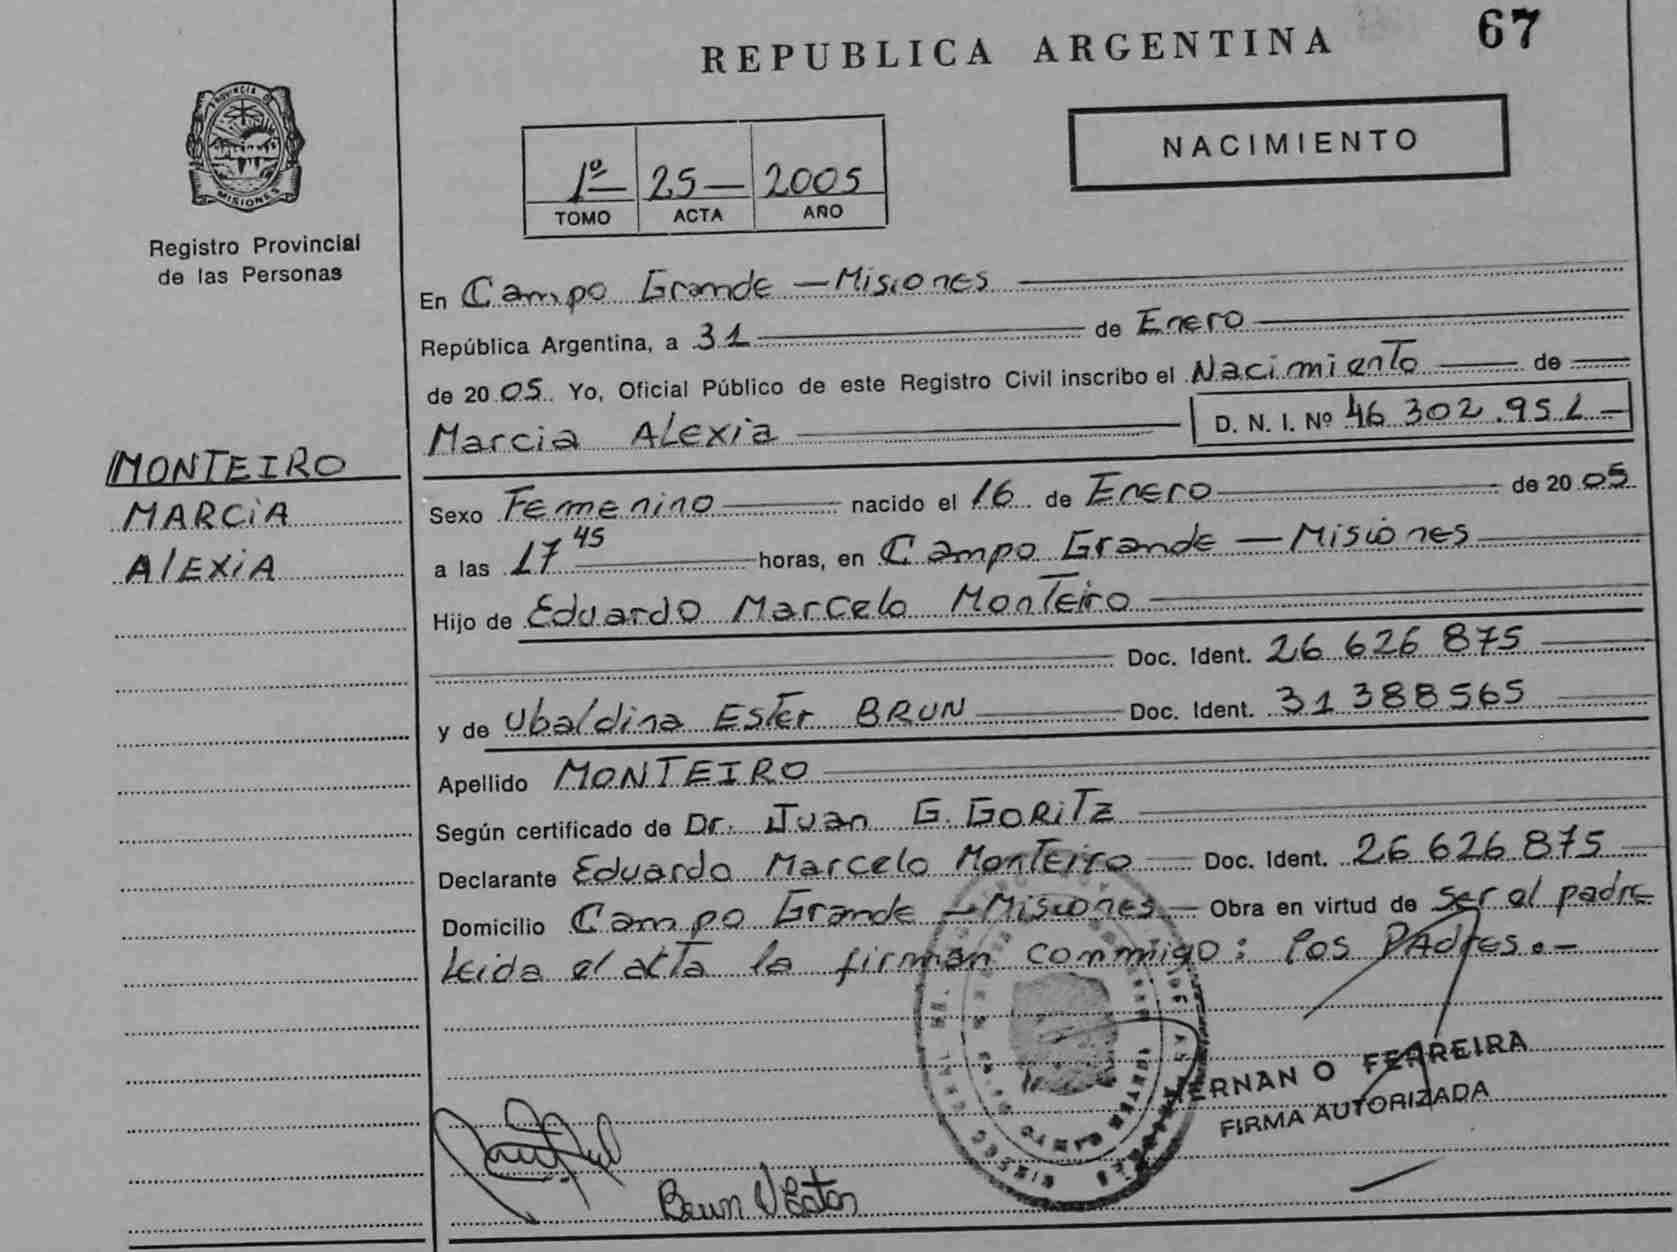 REPUBLICA ARGENTINA 67
PROVINCIA DE
MISIONES
Registro Provincial
de las Personas
NACIMIENTO
1º 25 2005
TOMO ACTA AÑO
En Campo Grande - Misiones
República Argentina, a 31 de Enero
de 2005. Yo, Oficial Público de este Registro Civil inscribo el Nacimiento de
Marcia Alexia D. N. I. Nº 46 302.951
MONTEIRO
MARCIA
AlEXiA
Sexo Femenino nacido el 16 de Enero de 2005
a las 17 45 horas, en Campo Grande - Misiones
Hijo de Eduardo Marcelo Monteiro
Doc. Ident. 26 626 875
y de Ubaldina Ester BRUN Doc. Ident. 31 388565
Apellido MONTEIRO
Según certificado de Dr. Juan G. GORiTz
Declarante Eduardo Marcelo Monteiro Doc. Ident. 26 626.875
Domicilio Campo Grande - Misiones Obra en virtud de ser el padre
Leida el acta la firman conmigo: los PAdres.-
RNAN O FERREIRA
FIRMA AUTORIZADA
Brun